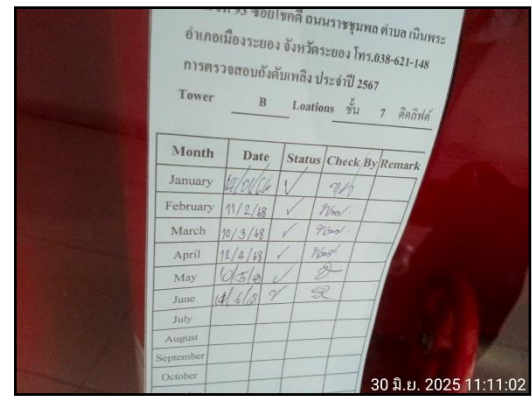 93 ซอยโชคดี ถนนราชชุมพล ตำบล เนินพระ
อำเภอเมืองระยอง จังหวัดระยอง โทร.038-621-148
การตรวจสอบถังดับเพลิง ประจำปี 2567
Tower B Loations ชั้น 7 ติดลิฟต์
Month Date Status Check By Remark
January ✓
February 11/2/68 ✓
March 10/3/68 ✓
April 12/4/68 ✓
May ✓
June ✓
July
August
September
October
30 มิ.ย. 2025 11:11:02